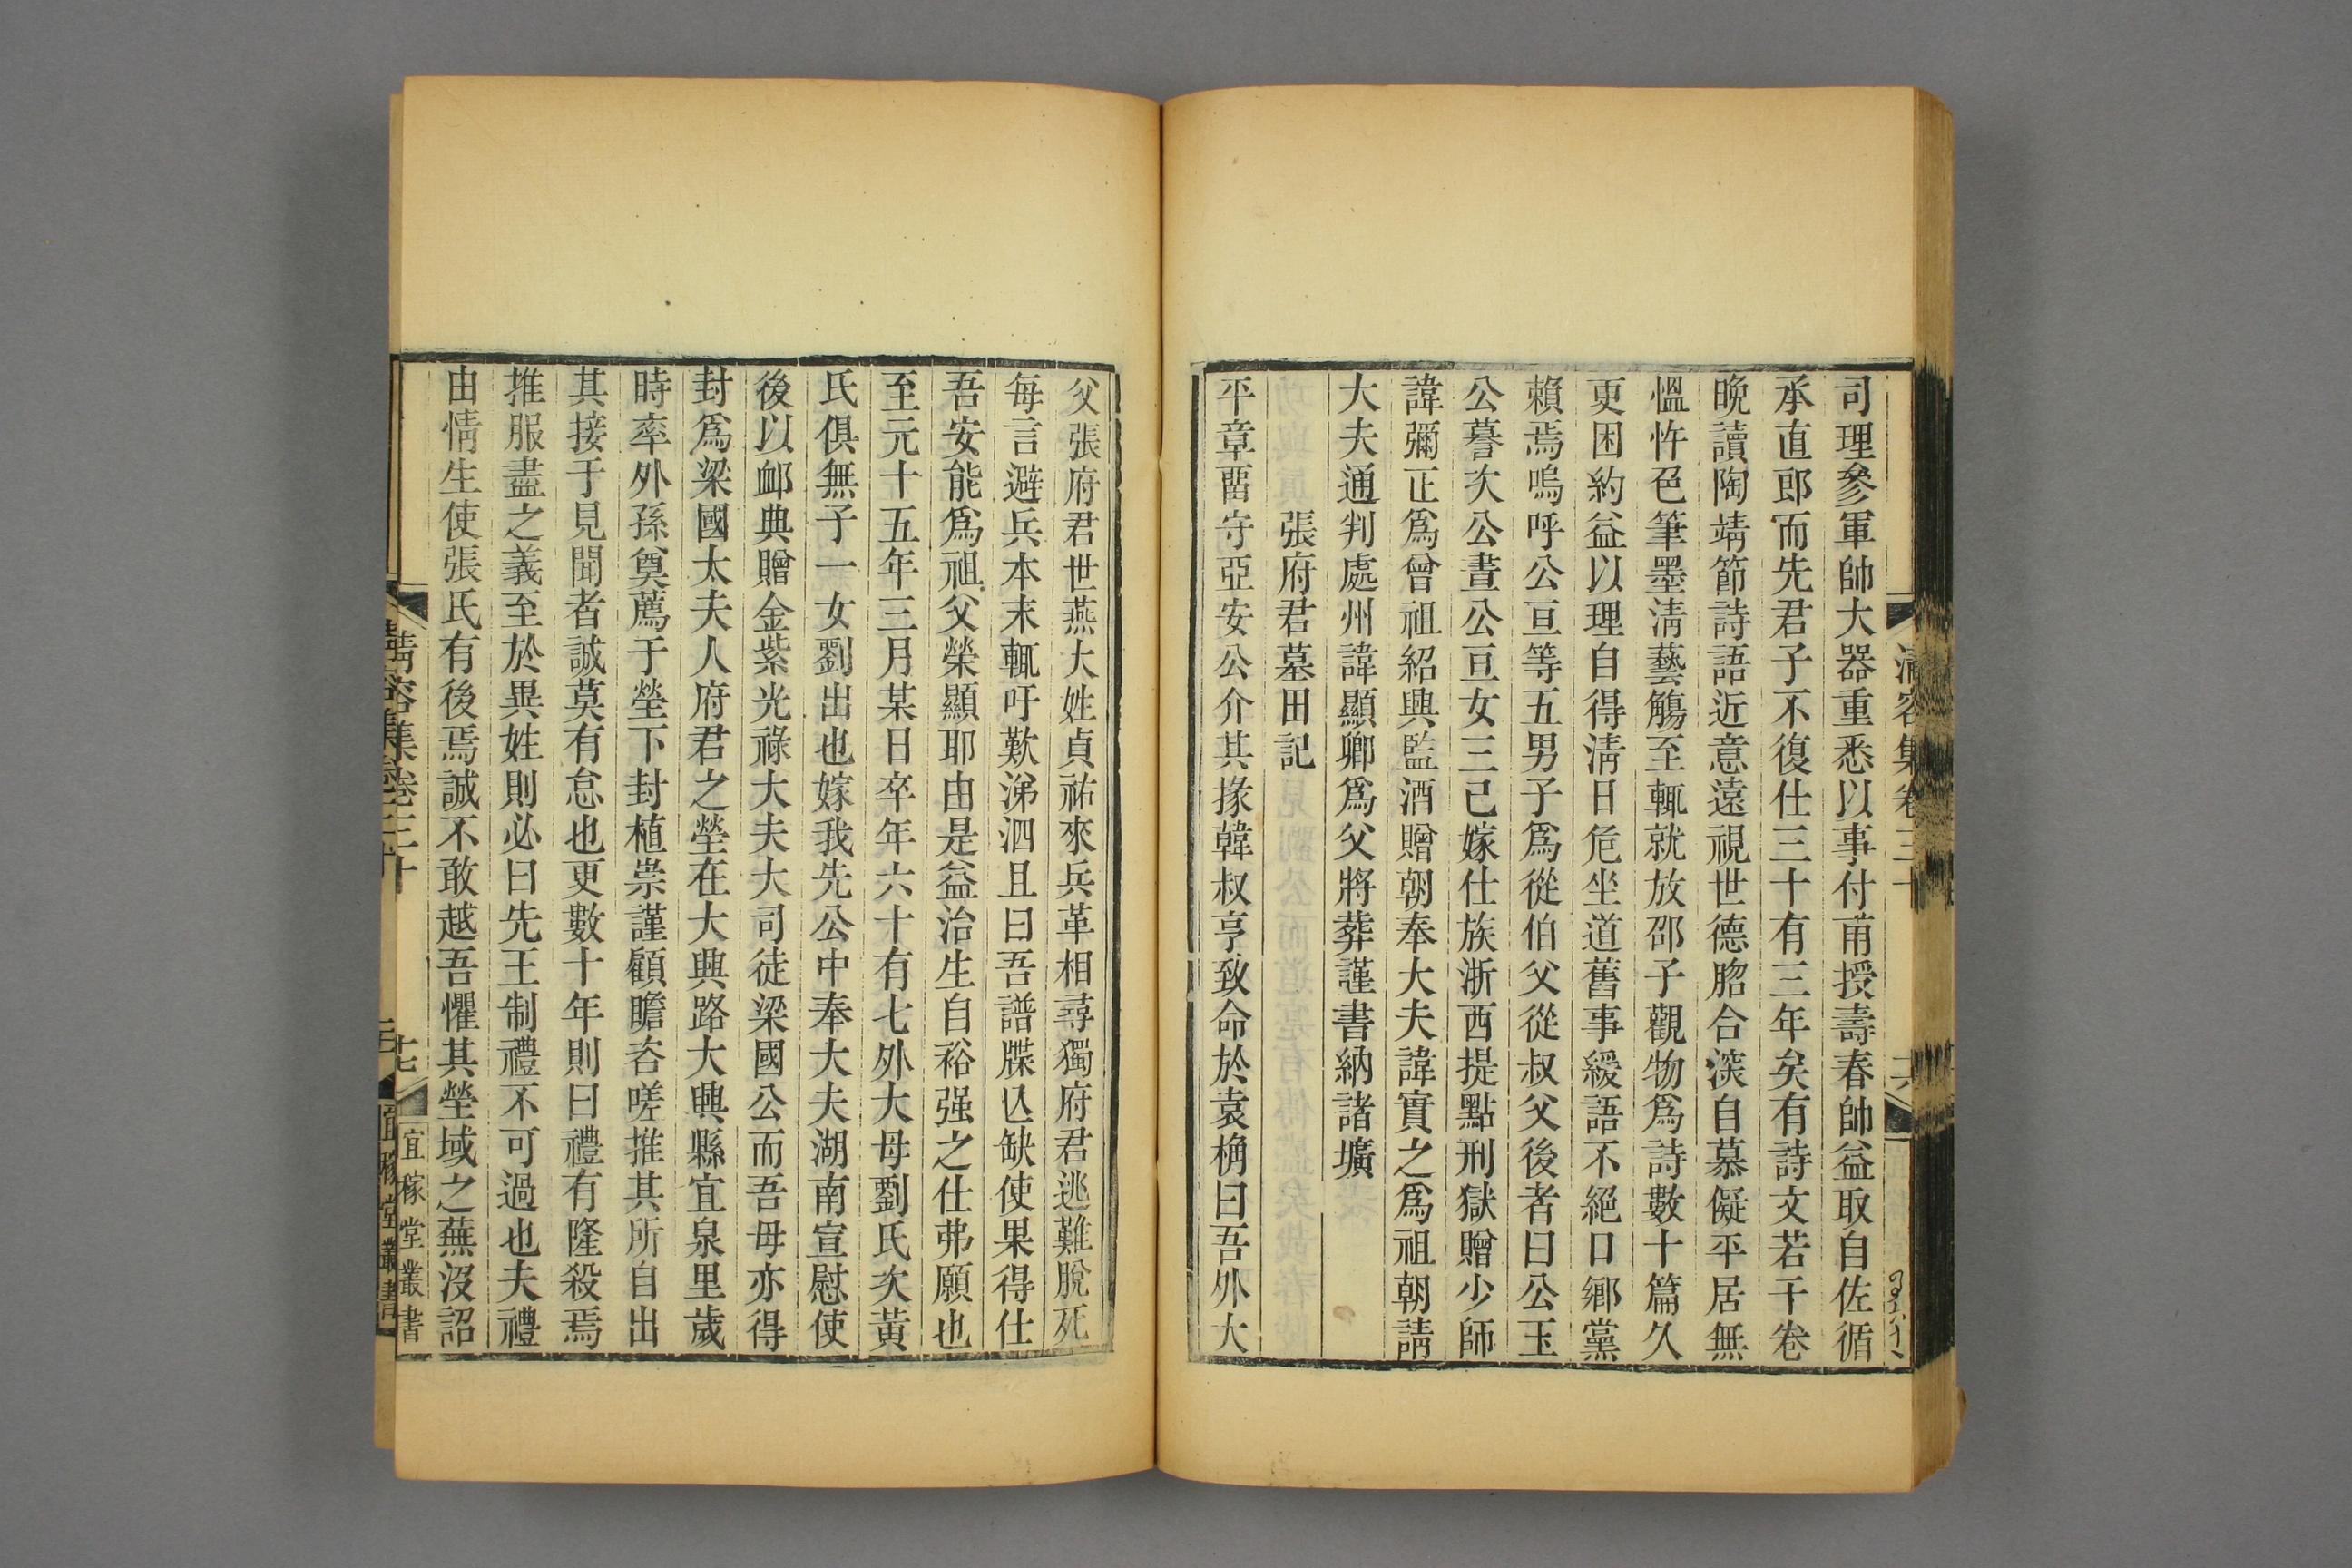 司理參軍帥大器重悉以事付甫授壽春帥益取自佐循
承直郎而先君子不復仕三十有三年矣有詩文若干卷
晚讀陶靖節詩語近意遠視世德脗合淡自慕儗平居無
慍怍色筆墨淸藝觴至輒就放邵子觀物爲詩數十篇久
更困約益以理自得淸日危坐道舊事緩語不絕口鄉黨
賴焉嗚呼公亘等五男子爲從伯父從叔父後者曰公玉
公諅次公晝公亘女三己嫁仕族浙西提點刑獄贈少師
諱彌正爲曾祖紹興監酒贈朝奉大夫諱實之爲祖朝請
大夫通判處州諱顯卿爲父將葬謹書納諸壙
張府君墓田記
平章畱守亞安公介其掾韓叔亨致命於袁桷曰吾外大
父張府君世燕大姓貞祐來兵革相尋獨府君逃難脫死
每言避兵本末輒吁歎涕泗且曰吾譜牒亾缺使果得仕
吾安能爲祖父榮顯耶由是益治生自裕强之仕弗願也
至元十五年三月某日卒年六十有七外大母劉氏次黃
氏俱無子一女劉出也嫁我先公中奉大夫湖南宣慰使
後以衈典贈金紫光祿大夫大司徒梁國公而吾母亦得
封爲梁國太夫人府君之塋在大興路大興縣宜泉里歲
時率外孫奠薦于塋下封植祟謹顧瞻咨嗟推其所自出
其接于見聞者誠莫有怠也更數十年則曰禮有隆殺焉
推服盡之義至於異姓則必曰先王制禮不可過也夫禮
由情生使張氏有後焉誠不敢越吾懼其塋域之蕪沒詔
清容集卷三十
十七
宜稼堂叢書